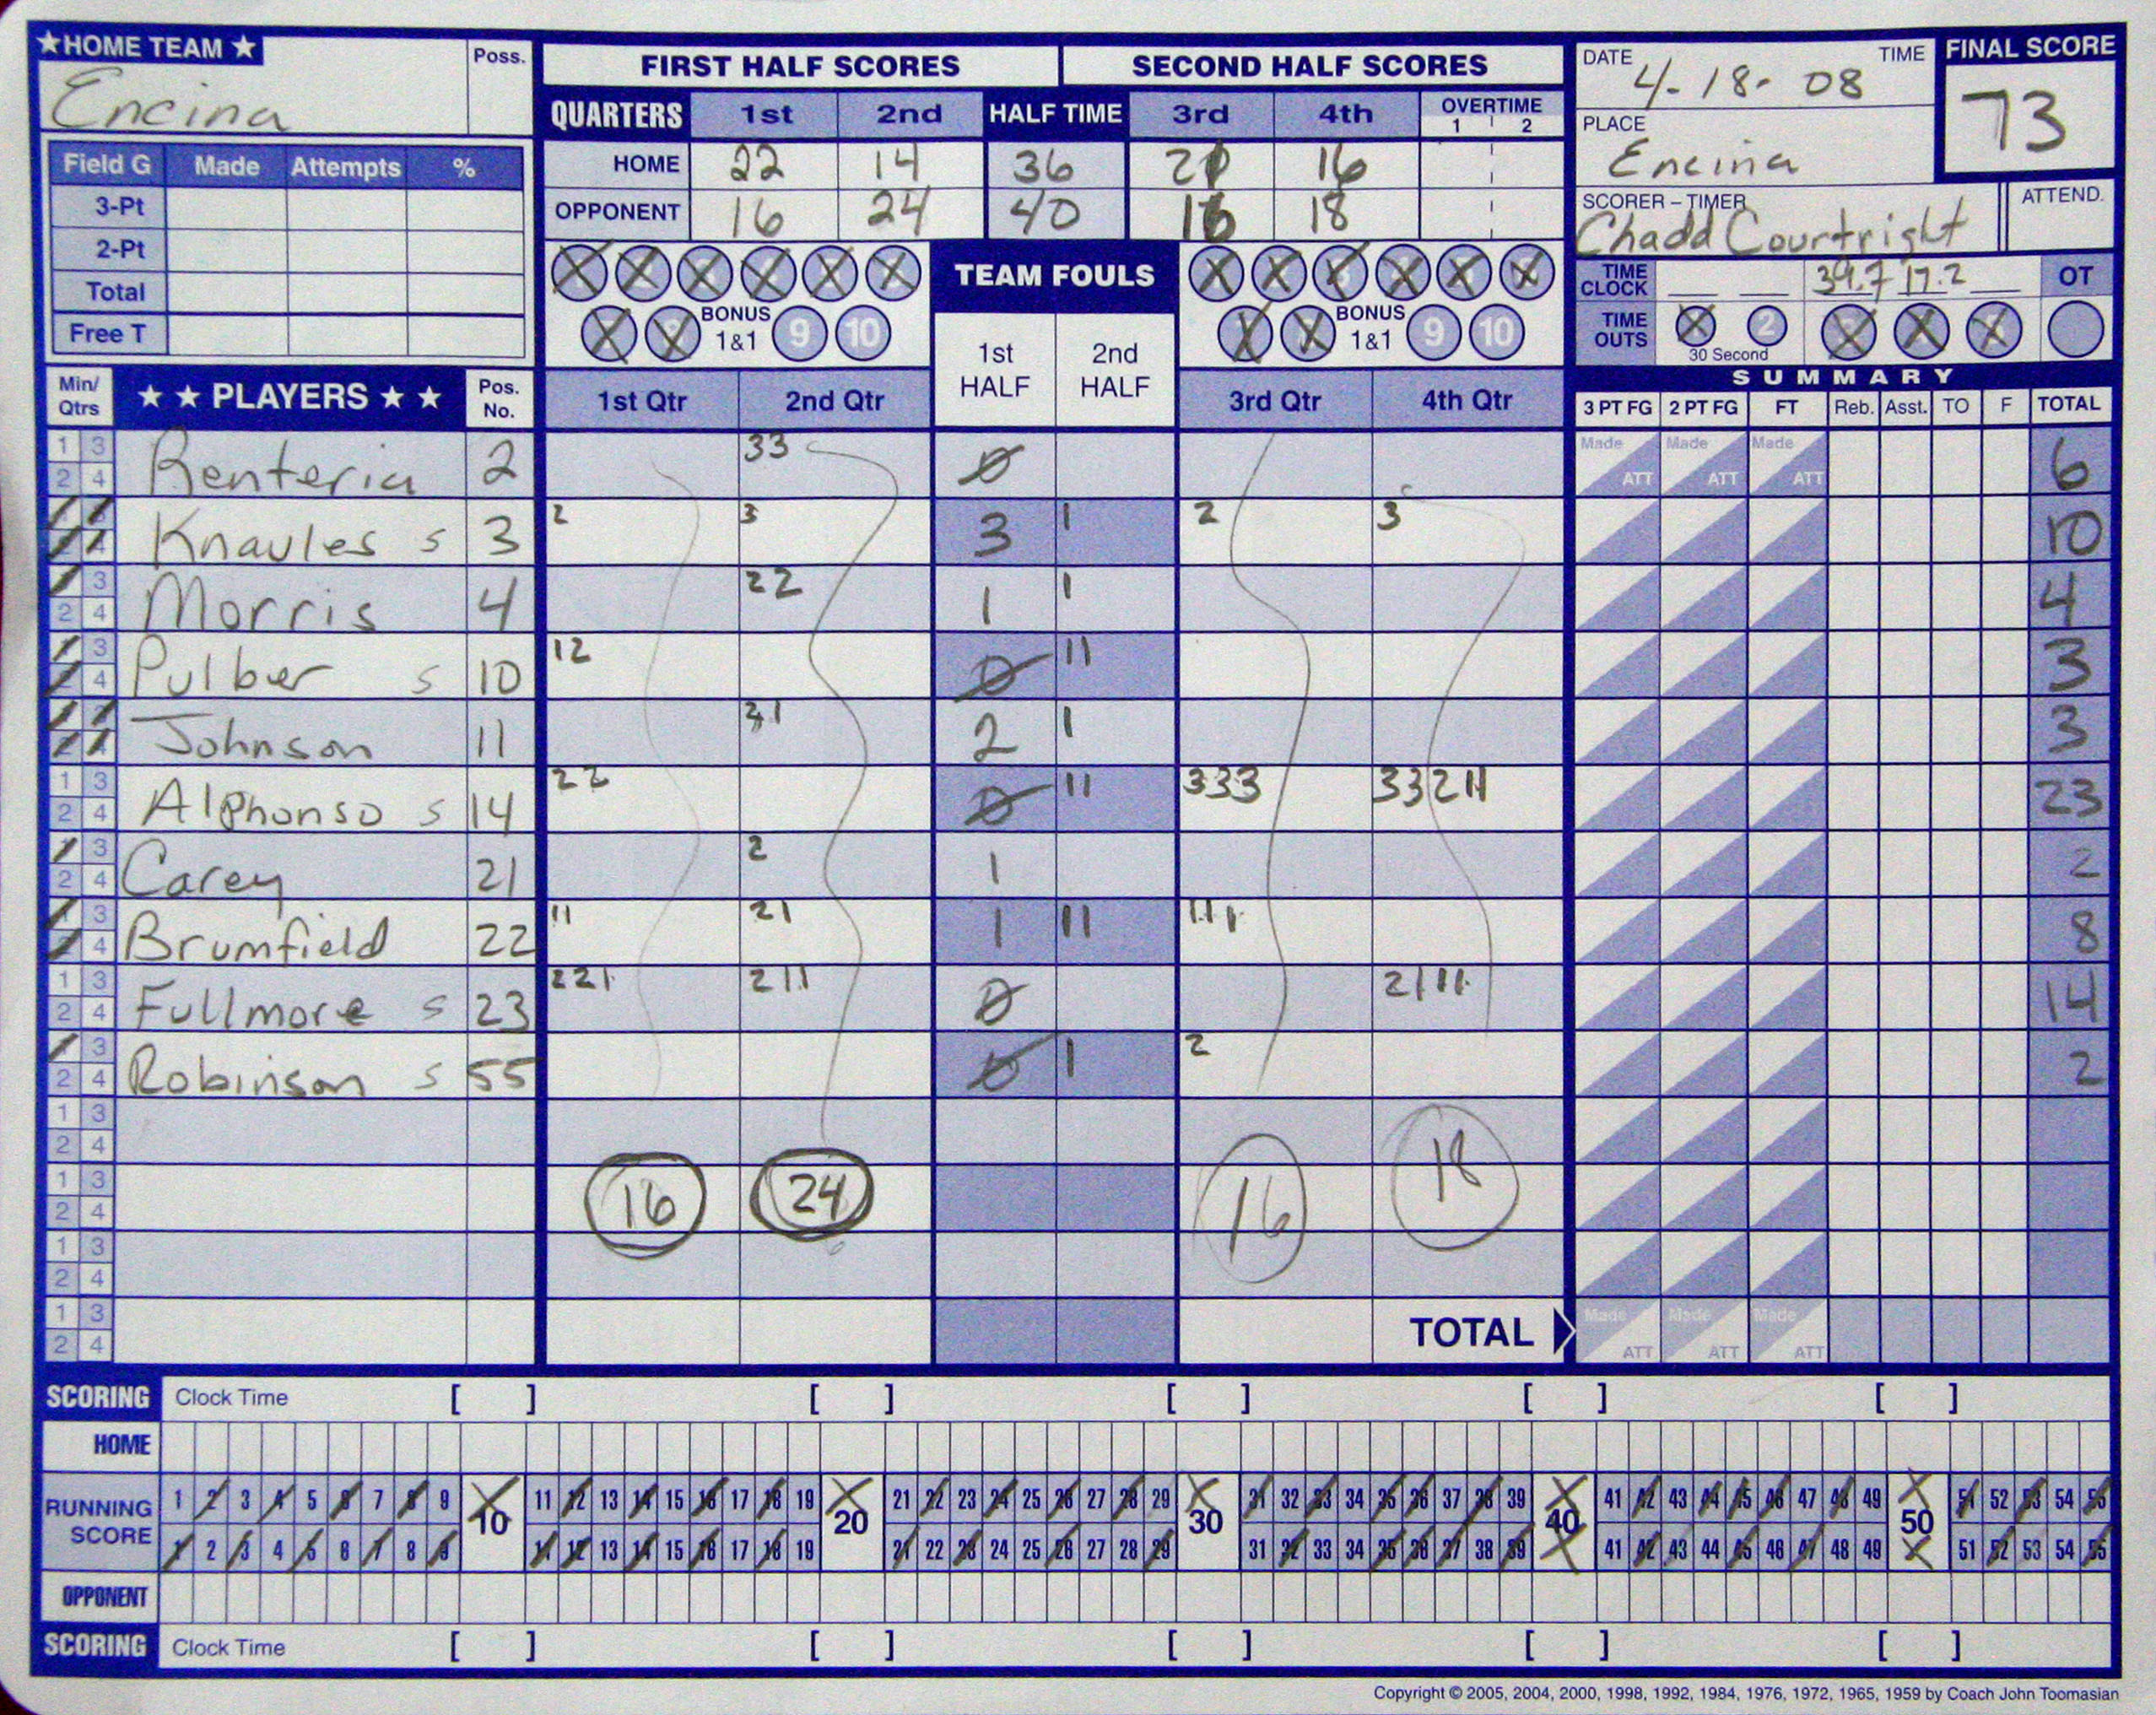 ★HOME TEAM★ Poss.
Encina
FIRST HALF SCORES SECOND HALF SCORES
QUARTERS 1st 2nd HALF TIME 3rd 4th OVERTIME 1 2
HOME 22 14 36 21 16
OPPONENT 16 24 40 16 18
DATE 4-18-08 TIME
FINAL SCORE
73
PLACE
Encina
SCORER – TIMER ATTEND.
Chadd Courtright
TIME CLOCK 39.7 17.2 OT
TIME OUTS 2
30 Second
Field G Made Attempts %
3-Pt
2-Pt
Total
Free T
TEAM FOULS
BONUS 1&1 9 10
BONUS 1&1 9 10
1st HALF 2nd HALF
SUMMARY
Min/Qtrs ★★PLAYERS★★ Pos. No. 1st Qtr 2nd Qtr 3rd Qtr 4th Qtr 3 PT FG 2 PT FG FT Reb. Asst. TO F TOTAL
Made ATT Made ATT Made ATT
1 3 2 4 Renteria 2 33 0 6
Knaules s 3 2 3 3 1 2 3 10
3 2 4 Morris 4 22 1 1 4
3 4 Pulber s 10 12 0 11 3
Johnson 11 21 2 1 3
1 3 2 4 Alphonso s 14 22 0 11 333 33211 23
3 2 4 Carey 21 2 1 2
3 4 Brumfield 22 11 21 1 11 111 8
1 3 2 4 Fullmore s 23 221 211 0 2111 14
3 2 4 Robinson s 55 0 1 2 2
1 3 2 4
1 3 2 4 16 24 16 18
1 3 2 4
1 3 2 4 TOTAL Made ATT Made ATT Made ATT
SCORING Clock Time [ ] [ ] [ ] [ ] [ ]
HOME
RUNNING SCORE
1 2 3 4 5 6 7 8 9 10 11 12 13 14 15 16 17 18 19 20 21 22 23 24 25 26 27 28 29 30 31 32 33 34 35 36 37 38 39 40 41 42 43 44 45 46 47 48 49 50 51 52 53 54 55
1 2 3 4 5 6 7 8 9 11 12 13 14 15 16 17 18 19 21 22 23 24 25 26 27 28 29 31 32 33 34 35 36 37 38 39 41 42 43 44 45 46 47 48 49 51 52 53 54 55
OPPONENT
SCORING Clock Time [ ] [ ] [ ] [ ] [ ]
Copyright © 2005, 2004, 2000, 1998, 1992, 1984, 1976, 1972, 1965, 1959 by Coach John Toomasian